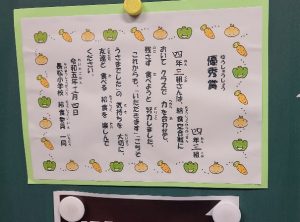 優秀賞
ゆうしゅうしょう
四年三組
四年三組さんは、給食
おいて クラスで 力を合わせて、
残さず 食べようと 努力しました。
これからも、「いただきます」「ごちそ
うさまでした」の 気持ちを 大切に、
友達と 食べる 給食を 楽しんで
ください。
令和五年十月四日
小学校 給食委員一同